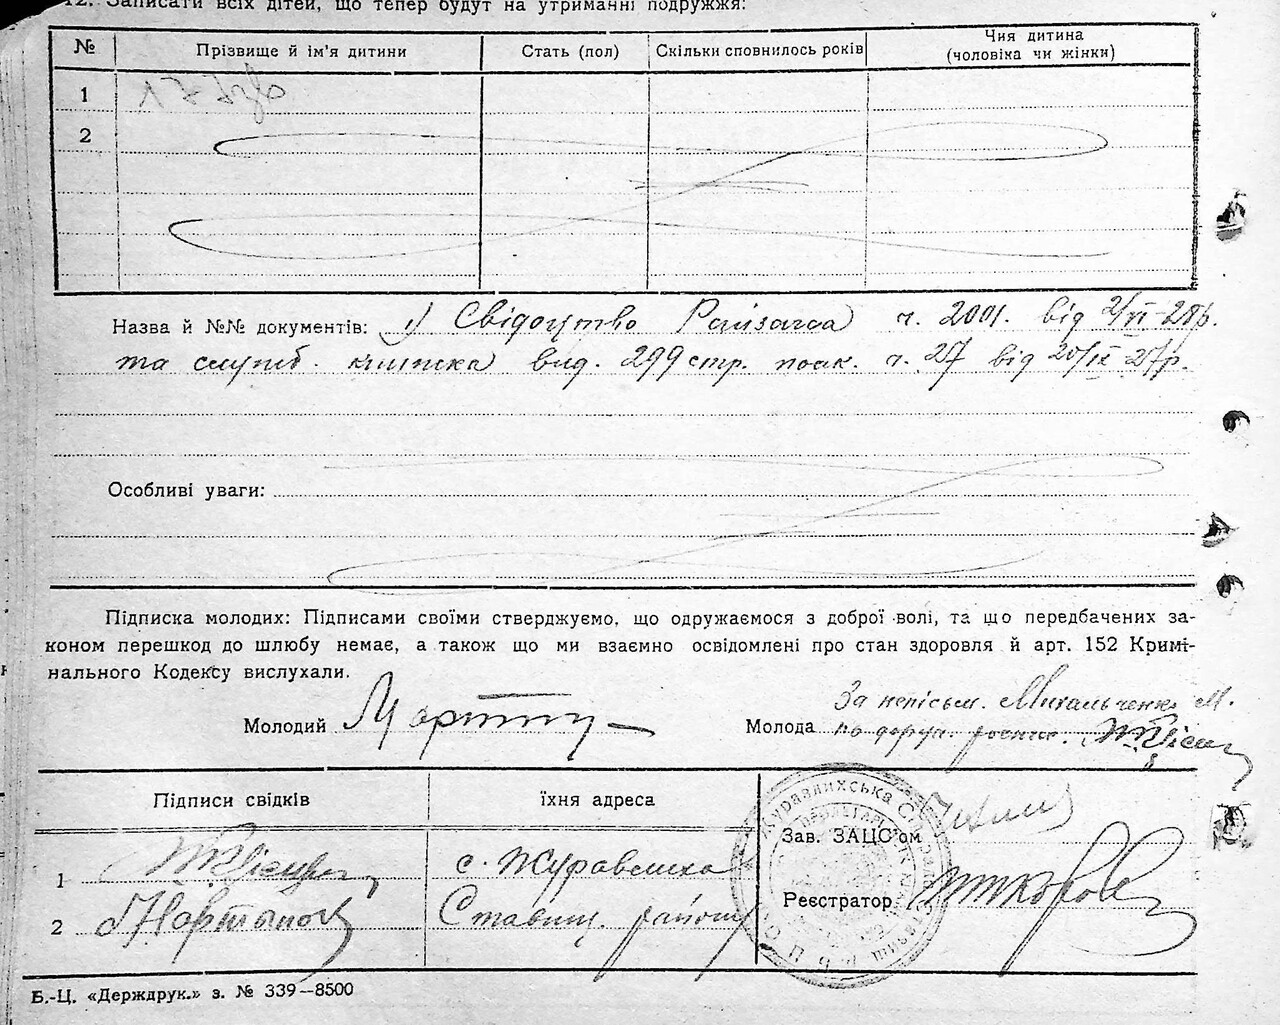 12. Записати всіх дітей, що тепер будут на утриманні подружжя:
№ Прізвище й ім'я дитини Стать (пол) Скільки сповнилось років Чия дитина (чоловіка чи жінки)
1
2
Назва й №№ документів: 1) Свідоцтво ч. 2001. від 2/VI-28р.
та служб. книжка вид. 299 стр. ч. 27 від 20/IX-27р.
Особливі уваги:
Підписка молодих: Підписами своїми стверджуємо, що одружаємося з доброї волі, та що передбачених за-
коном перешкод до шлюбу немає, а також що ми взаємно освідомлені про стан здоров'я й арт. 152 Кримі-
нального Кодексу вислухали.
Молодий
За неписьм. Михальченко М.
Молода по доруч.
Підписи свідків їхня адреса
Зав. ЗАЦС'ом
1 с. Журавлиха
2 Ставищ. району
Реєстратор
Б.-Ц. «Держдрук.» з. № 339—8500